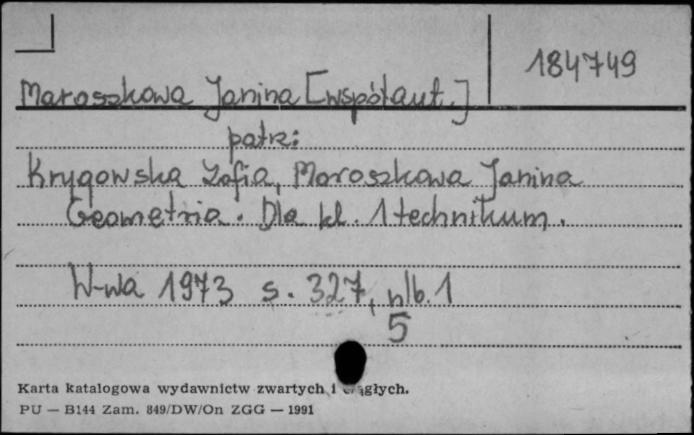 184749
Maroszkowa Janina [współaut.]
patrz:
Krygowska Zofia, Maroszkowa Janina
Geometria. Dla kl. 1 technikum.
W-wa 1973 s. 327, nlb. 1
5
Karta katalogowa wydawnictw zwartych i ciągłych.
PU — B144 Zam. 849/DW/On ZGG — 1991